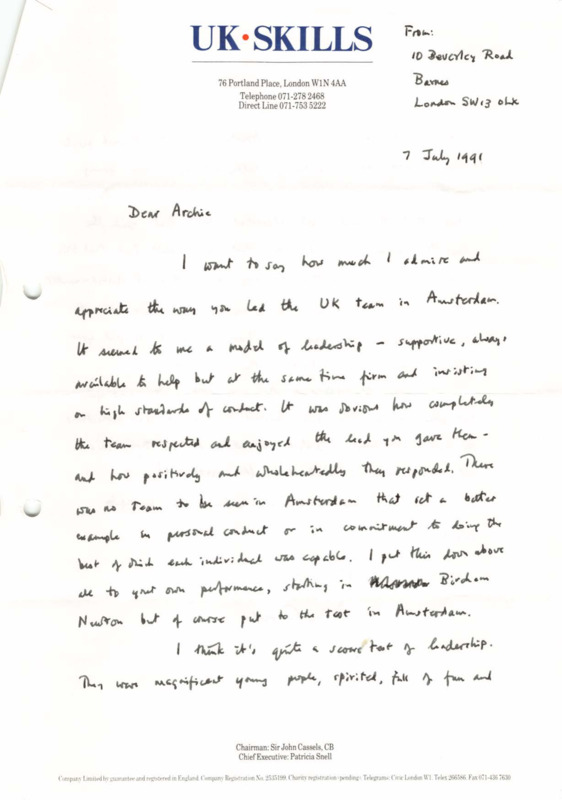 UK·SKILLS
76 Portland Place, London W1N 4AA
Telephone 071-278 2468
Direct Line 071-753 5222
From:
10 Beverley Road
Barnes
London SW13 0LX
7 July 1991
Dear Archie
I want to say how much I admire and
appreciate the way you led the UK team in Amsterdam.
It seemed to me a model of leadership – supportive, always
available to help but at the same time firm and insisting
on high standards of conduct. It was obvious how completely
the team respected and enjoyed the lead you gave them –
and how positively and wholeheartedly they responded. There
was no team to be seen in Amsterdam that set a better
example in personal conduct or in commitment to doing the
best of which each individual was capable. I put this down above
all to your own performance, starting in Bircham
Newton but of course put to the test in Amsterdam.
I think it's quite a severe test of leadership.
They were magnificent young people, spirited, full of fun and
Chairman: Sir John Cassels, CB
Chief Executive: Patricia Snell
Company Limited by guarantee and registered in England. Company Registration No. 2535199. Charity registration ‹pending› Telegrams: Civic London W1. Telex 266586 Fax 071-436 7630